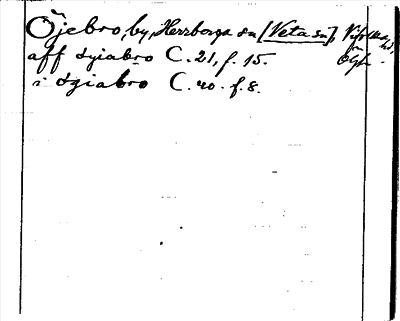 Öjebro, by, Herrberga sn [Veta sn], Vifolka hd.
aff øyiabro C. 21, f. 15. Ögl.
i øyiabro C. 20. f. 8.